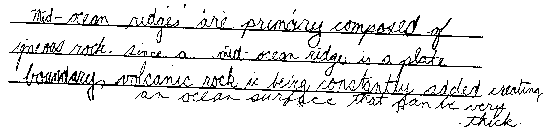 Mid-ocean ridges are primary composed of
igneous rock. since a mid-ocean ridge is a plate
boundary, volcanic rock is being constantly added creating
an ocean surface that can be very
thick.